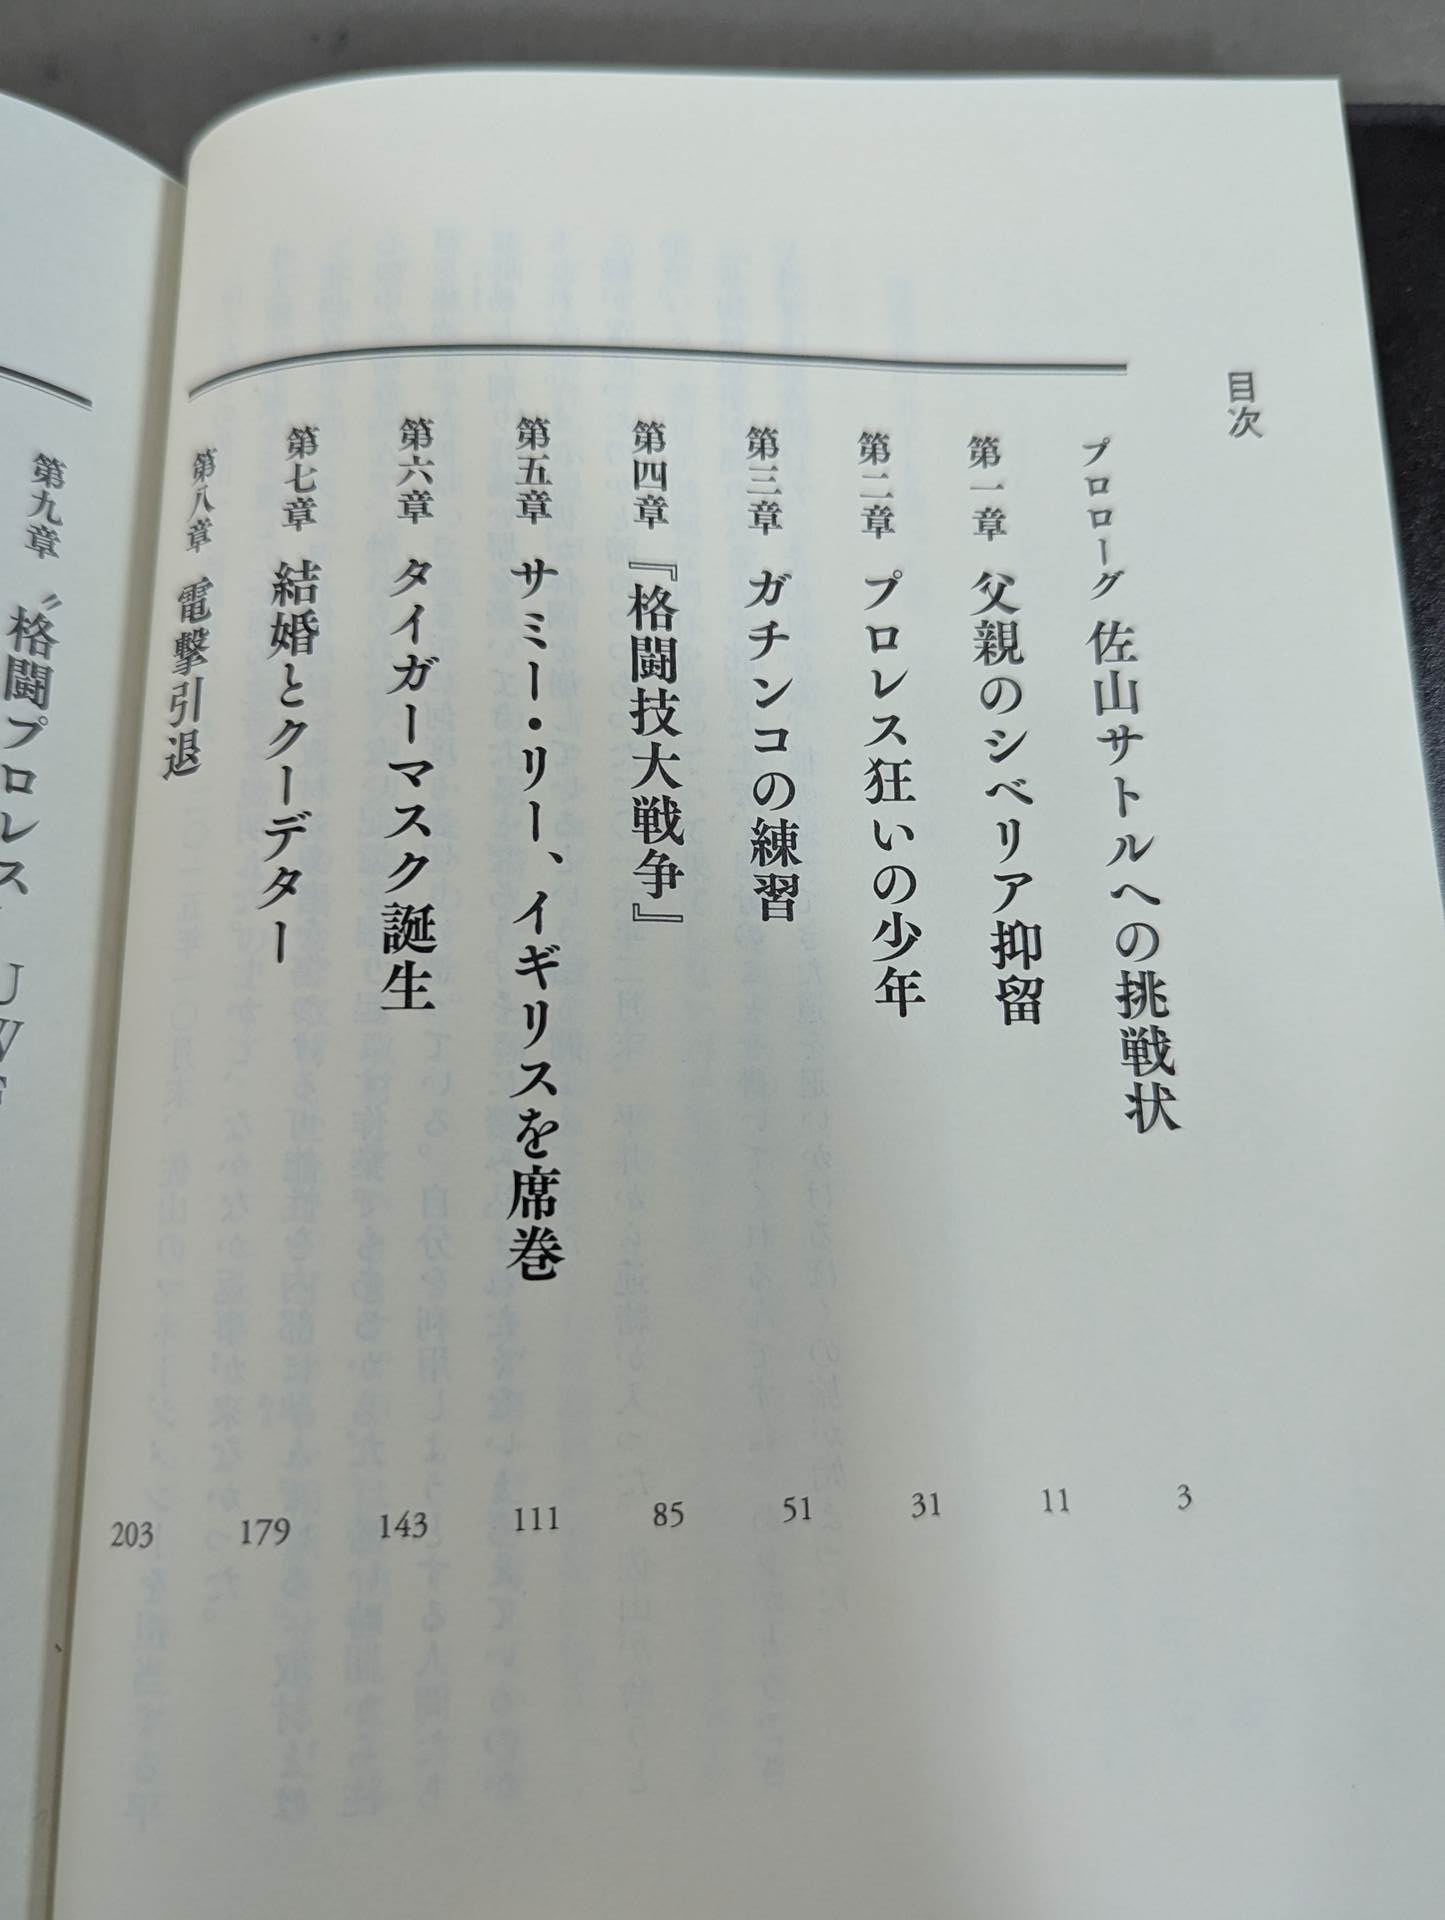 目次
プロローグ 佐山サトルへの挑戦状 3
第一章 父親のシベリア抑留 11
第二章 プロレス狂いの少年 31
第三章 ガチンコの練習 51
第四章 『格闘技大戦争』 85
第五章 サミー・リー、イギリスを席巻 111
第六章 タイガーマスク誕生 143
第七章 結婚とクーデター 179
第八章 電撃引退 203
第九章 〝格闘プロレス〟UWF